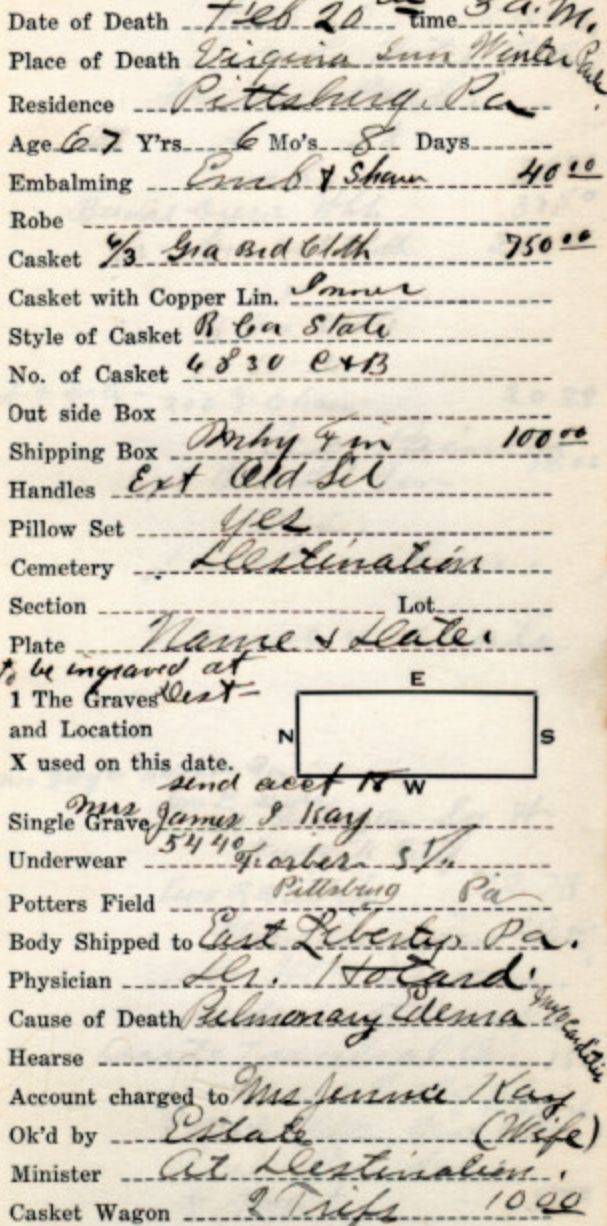 Date of Death Feb 20 time 3 a.m.
Place of Death Virginia Inn Winter Park
Residence Pittsburg, Pa
Age 67 Y'rs 6 Mo's 8 Days
Embalming Emb & Shave 40 00
Robe
Casket 6/3 Gra Brd Cloth 750 00
Casket with Copper Lin. Inner
Style of Casket State
No. of Casket C & B
Out side Box
Shipping Box 100 00
Handles Ext Old Sil
Pillow Set yes
Cemetery Destination
Section Lot
Plate Name & Date.
to be ingraved at
1 The Graves Dest
and Location
X used on this date.
E
N S
W
send acct to
Single Grave Mrs James I Kay
Underwear 5440 Forbes St.
Potters Field Pittsburg Pa
Body Shipped to East Liberty Pa.
Physician Dr. Hotard.
Cause of Death Pulmonary Edema Myocarditis
Hearse
Account charged to Mrs Jennie Kay
Ok'd by Estate (Wife)
Minister At Destination.
Casket Wagon 2 Trips 10 00